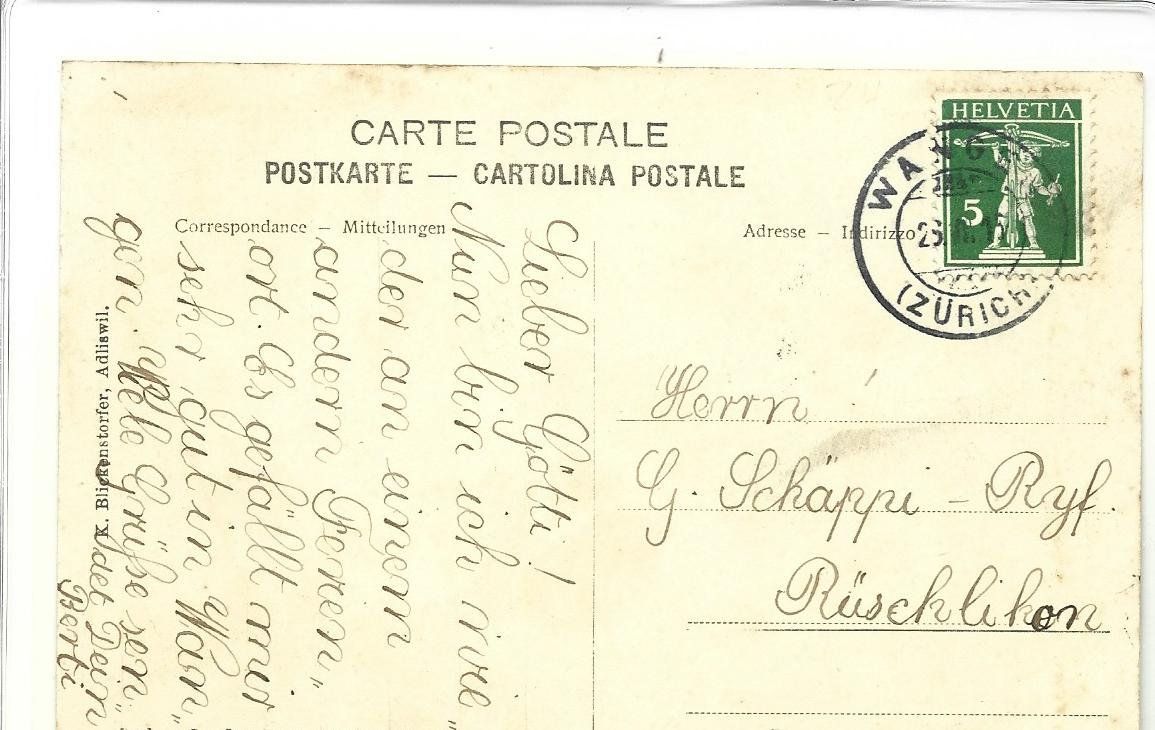 CARTE POSTALE
POSTKARTE — CARTOLINA POSTALE
Correspondance – Mitteilungen
Adresse – Indirizzo
HELVETIA
5
WANG
(ZÜRICH
Lieber Götti!
Nun bin ich wie„
der an einem
andern Ferien„
ort. Es gefällt mir
sehr gut in Wan„
gen. Viele Grüße sen„
det Dein
Berti
Herrn
G. Schäppi - Ryf.
Rüschlikon
K. Blickenstorfer, Adliswil.